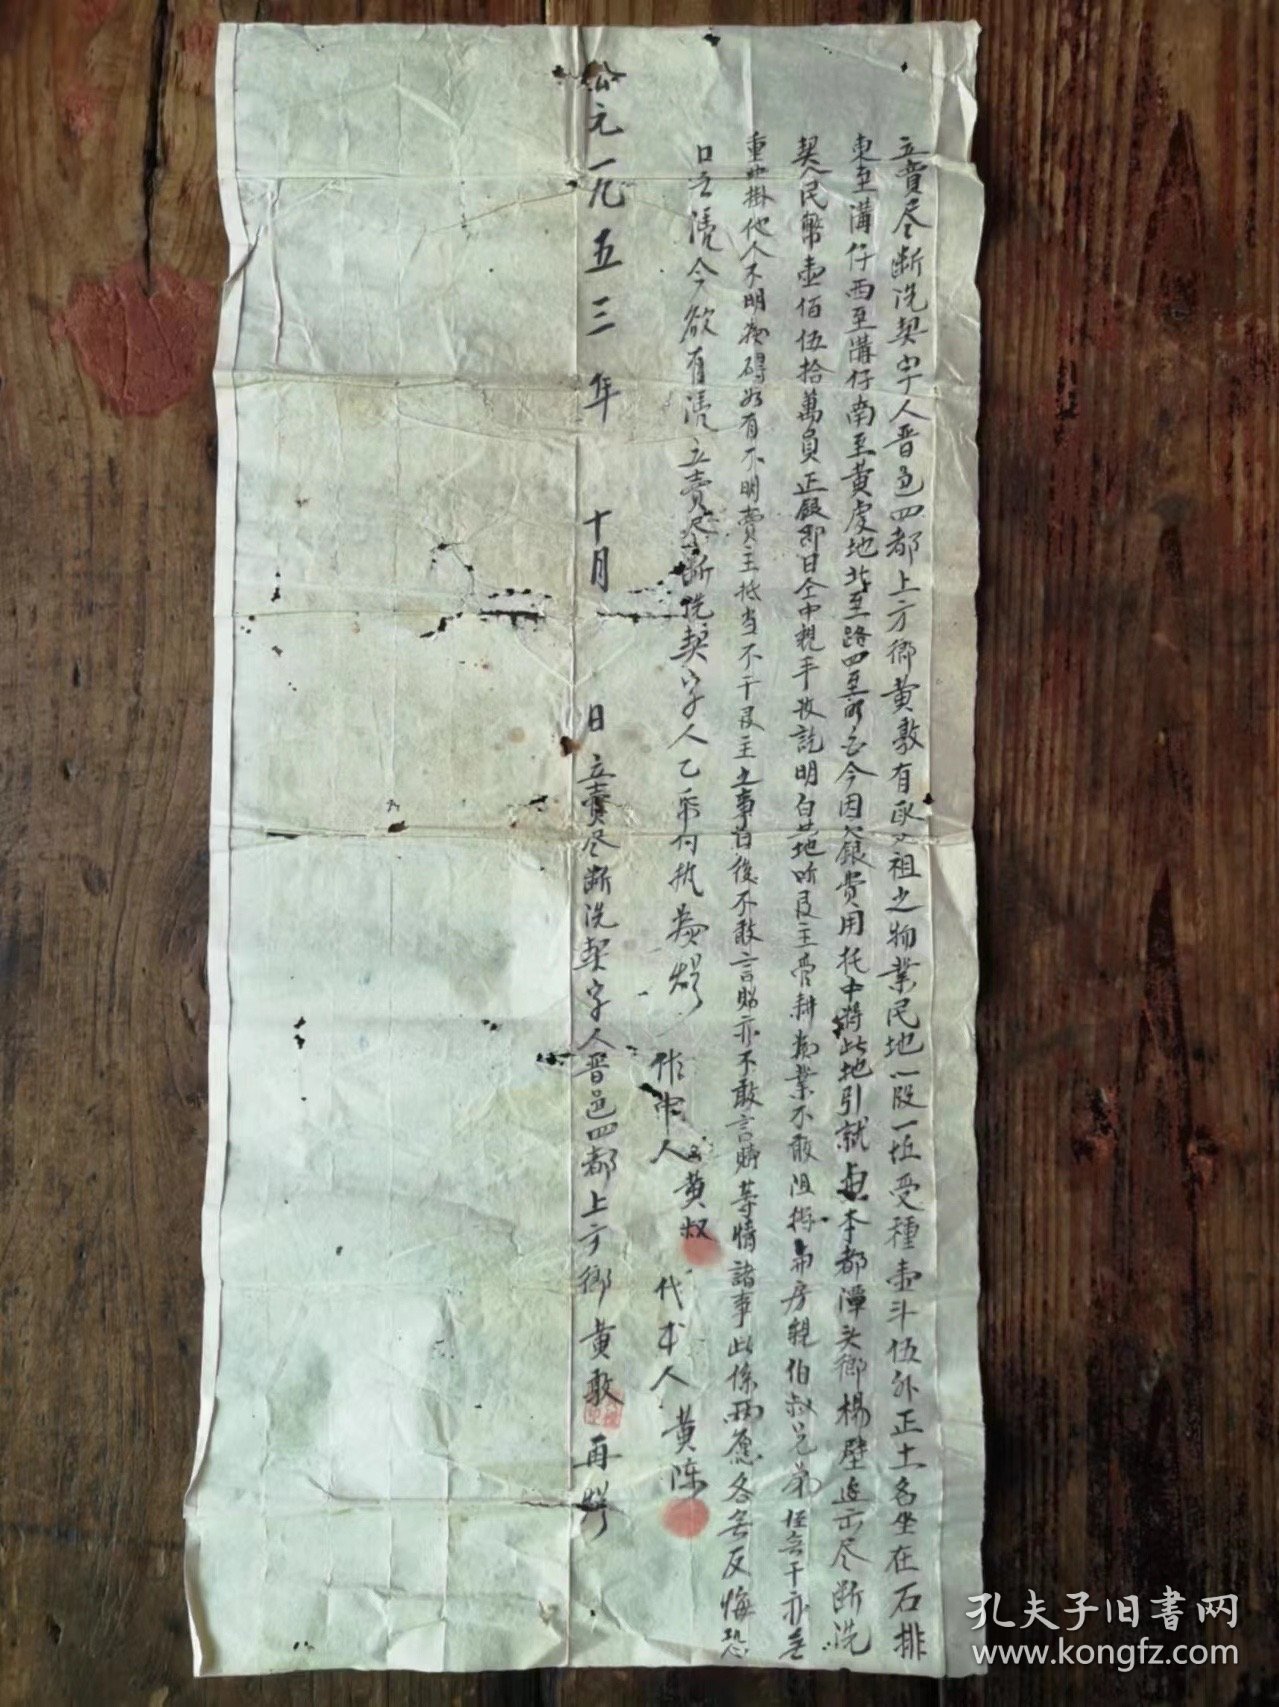 立賣尽断洗契字人晋邑四都上方鄉黄敦有承父祖之物業民地一段一坵受種壹斗伍升正土名坐在石排
東至溝仔西至溝仔南至黄虔地北至路四至明白今因欠銀費用托中将此地引就与本都潭头鄉楊壁边示尽断洗
契人民幣壹佰伍拾萬員正銀即日仝中親手收訖明白其地听艮主管耕為業不敢阻擋而房親伯叔兄弟任無干亦無
重典掛他人不明為碍如有不明賣主抵当不干艮主之事日後不敢言貼亦不敢言贖等情諸事此係兩愿各無反悔恐
口無凭今欲有凭立賣尽断洗契字人乙希付执為炤
作中人 黄叔 代書人 黄陈
公元一九五三年 十月 日立賣尽断洗契字人晋邑四都上方鄉黄敦 再炤
孔夫子旧書网
www.kongfz.com